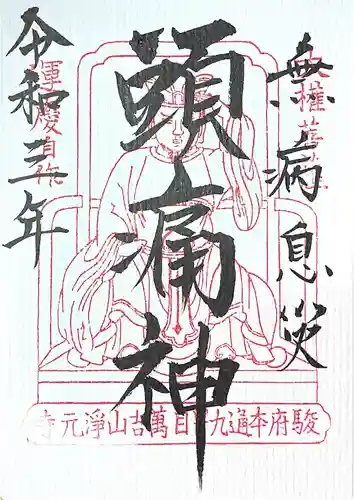 無病息災
頭痛神
令和三年
運慶自作
駿府本通九丁目萬吉山淨元寺